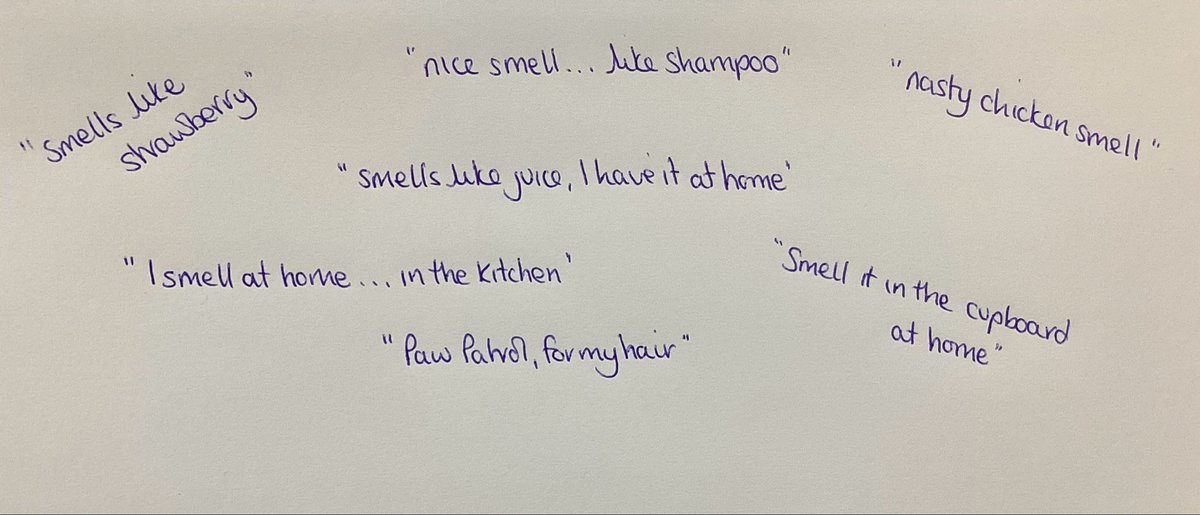 "nice smell... like shampoo"
"smells like
strawberry"
"nasty chicken smell"
"smells like juice, I have it at home'
"I smell at home... in the kitchen'
"Smell it in the cupboard
at home"
"Paw Patrol, for my hair"